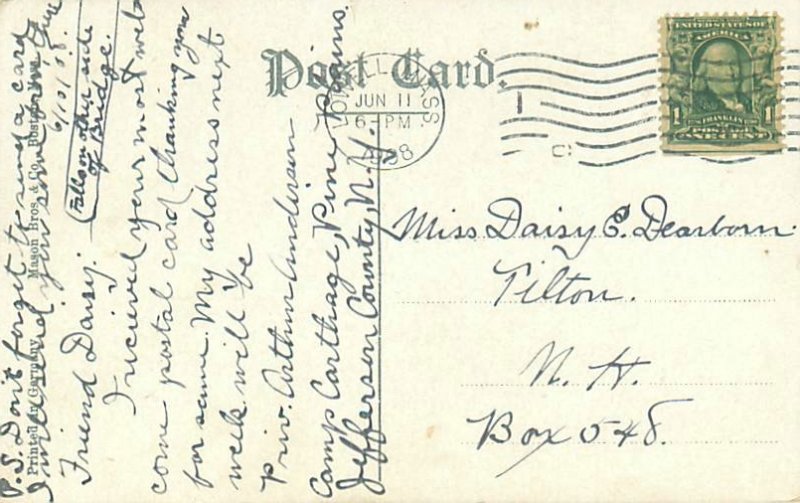 Post Card.
LOWELL MASS
JUN 11
6-PM
UNITED STATES OF
AMERICA
FRANKLIN
1 1
Miss Daisy E. Dearborn
Tilton.
N. H.
Box 548.
6/10/08.
Falls on other side
of Bridge.
Friend Daisy:
I recieved your most wel
come postal card thanking you
for same. My address next
week will be
Priv. Arthur Anderson
Camp Carthage, Pine Plains.
Jefferson County, N.Y.
P.S. Don't forget to send a card
I will send you some from there
Printed in Germany. Mason Bros. & Co. Boston